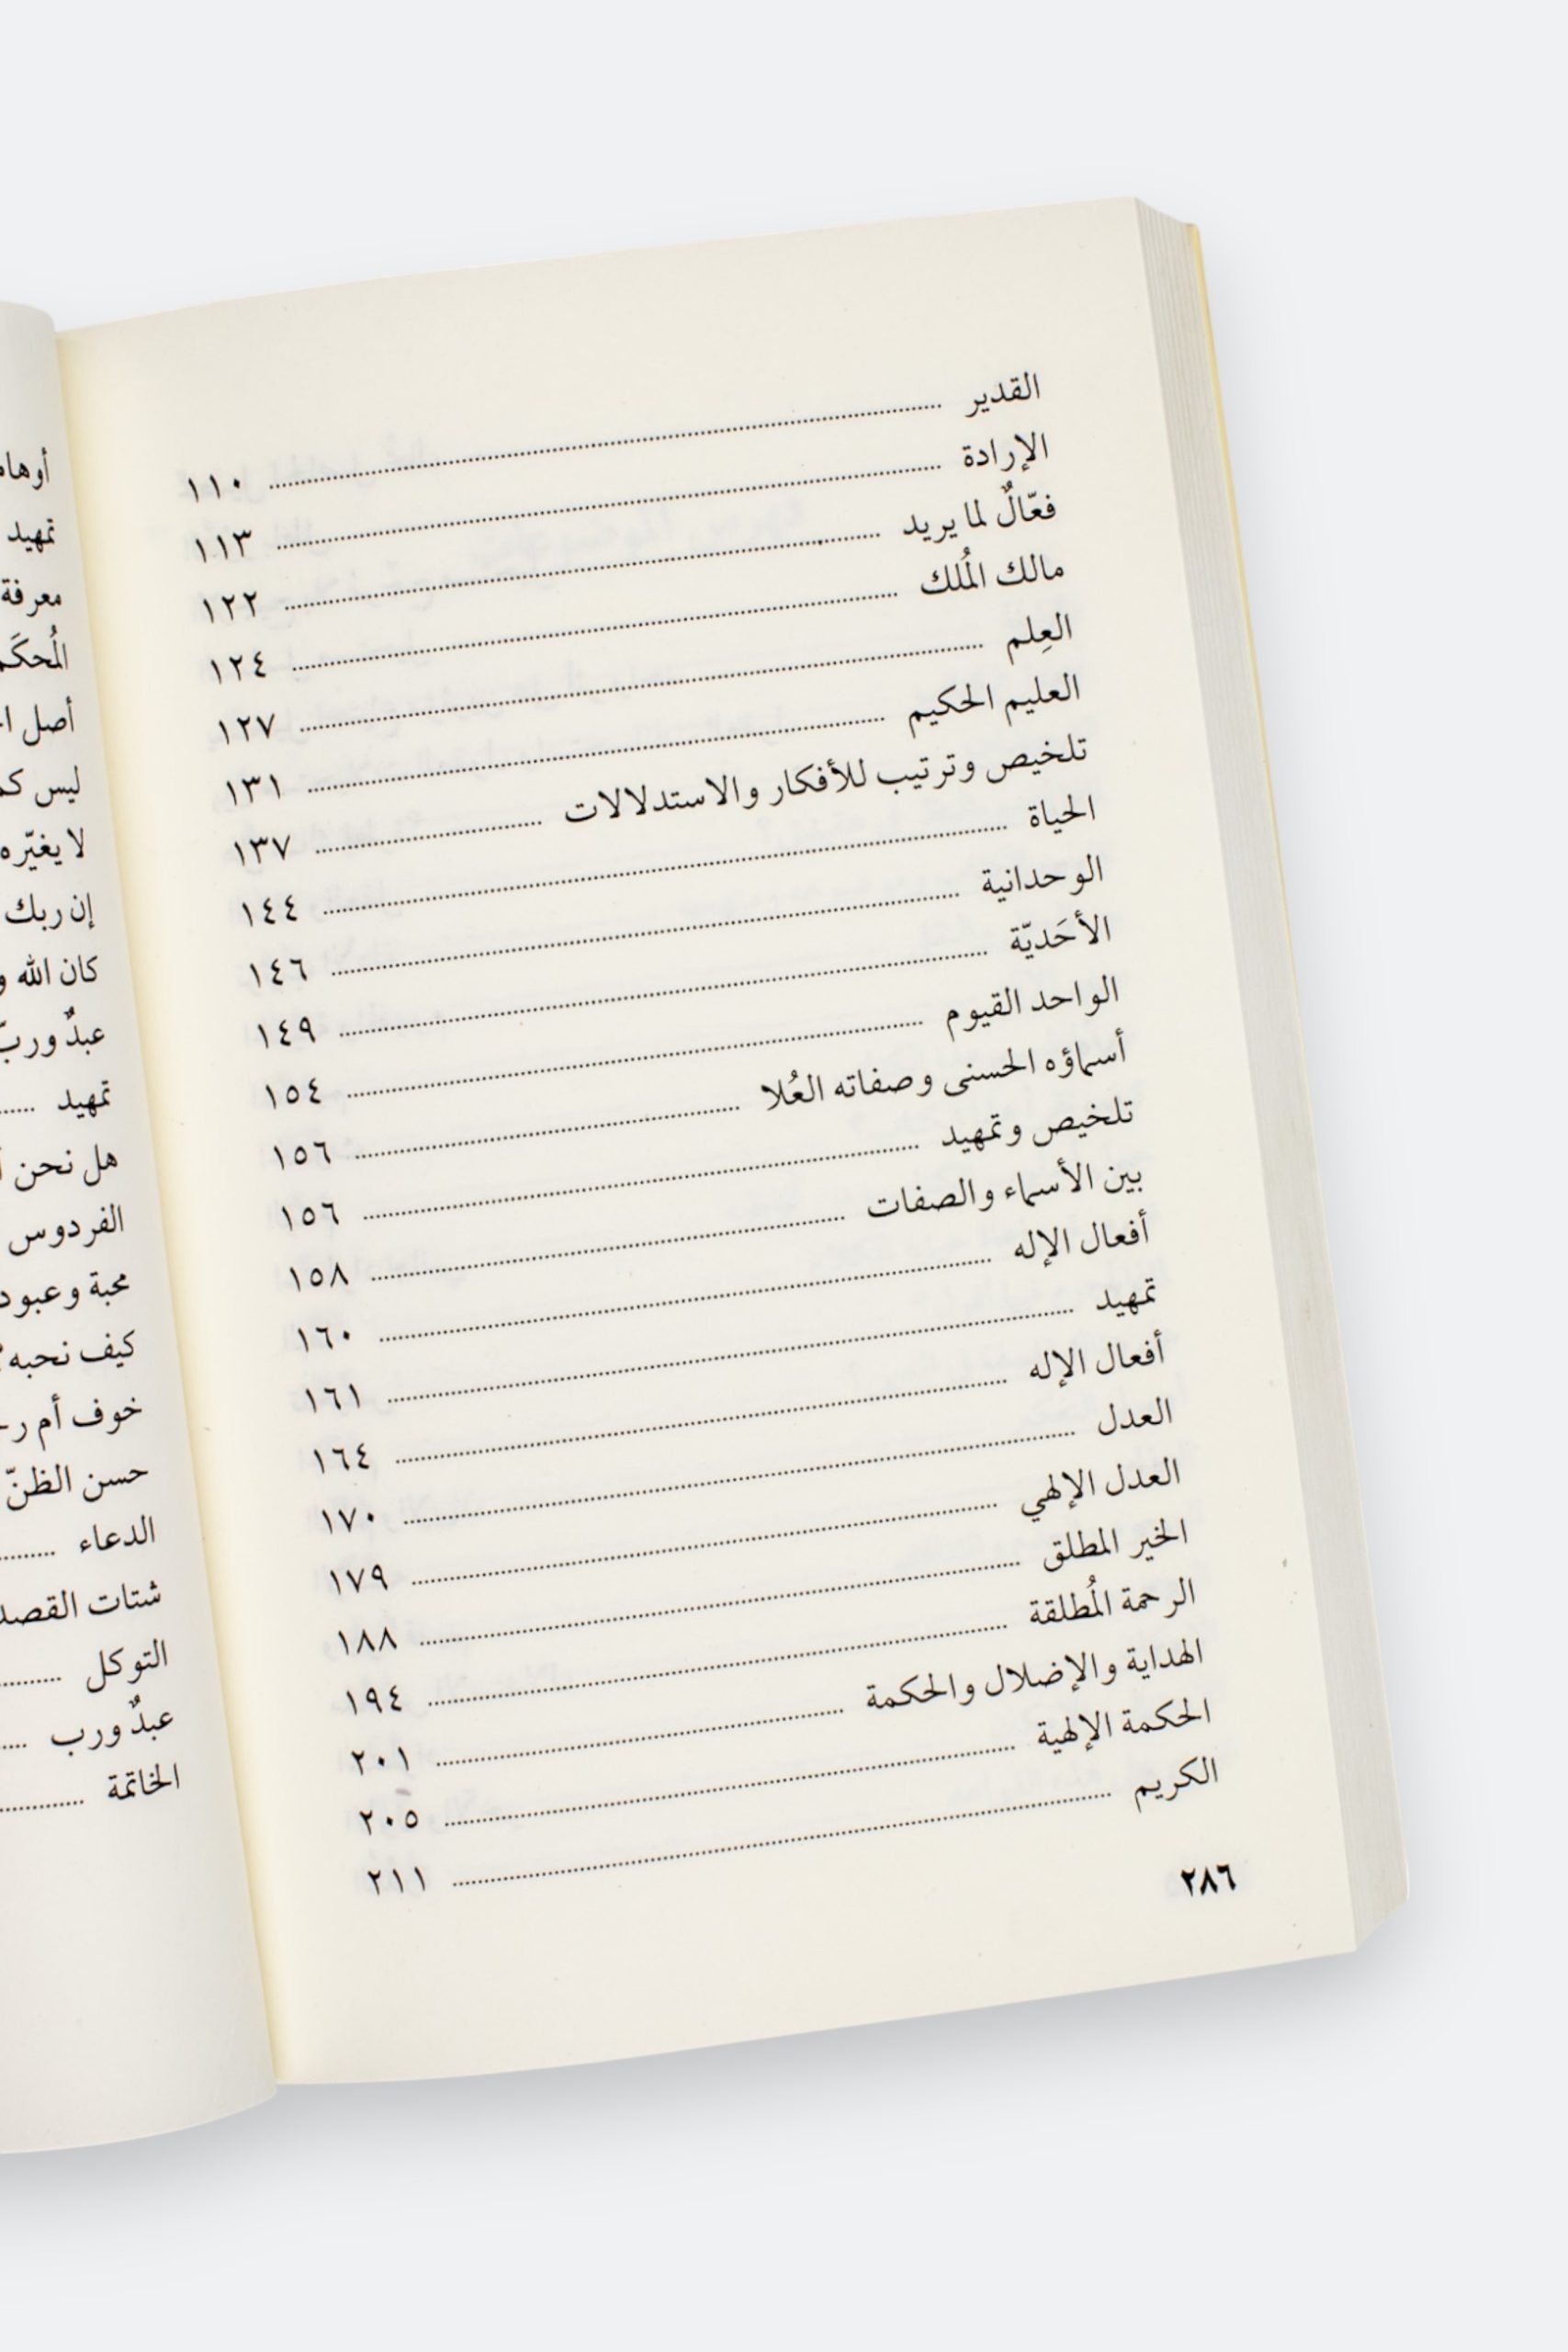 القدير ........ ١١٠
الإرادة ........ ١١٣
فعّالٌ لما يريد ........ ١٢٢
مالك المُلك ........ ١٢٤
العِلم ........ ١٢٧
العليم الحكيم ........ ١٣١
تلخيص وترتيب للأفكار والاستدلالات ........ ١٣٧
الحياة ........ ١٤٤
الوحدانية ........ ١٤٦
الأحَديّة ........ ١٤٩
الواحد القيوم ........ ١٥٤
أسماؤه الحسنى وصفاته العُلا ........ ١٥٦
تلخيص وتمهيد ........ ١٥٦
بين الأسماء والصفات ........ ١٥٨
أفعال الإله ........ ١٦٠
تمهيد ........ ١٦١
أفعال الإله ........ ١٦٤
العدل ........ ١٧٠
العدل الإلهي ........ ١٧٩
الخير المطلق ........ ١٨٨
الرحمة المُطلقة ........ ١٩٤
الهداية والإضلال والحكمة ........ ٢٠١
الحكمة الإلهية ........ ٢٠٥
الكريم ........ ٢١١
٢٨٦
تمهيد
معرفة
أصل
ليس
لا يغيّره
إن ربك
كان الله
عبدٌ وربّ
تمهيد ........
هل نحن
الفردوس
محبة
كيف نحبه؟
خوف أم
حسن الظنّ
الدعاء ........
شتات القصد
التوكل ........
عبدٌ ورب ........
الخاتمة ........